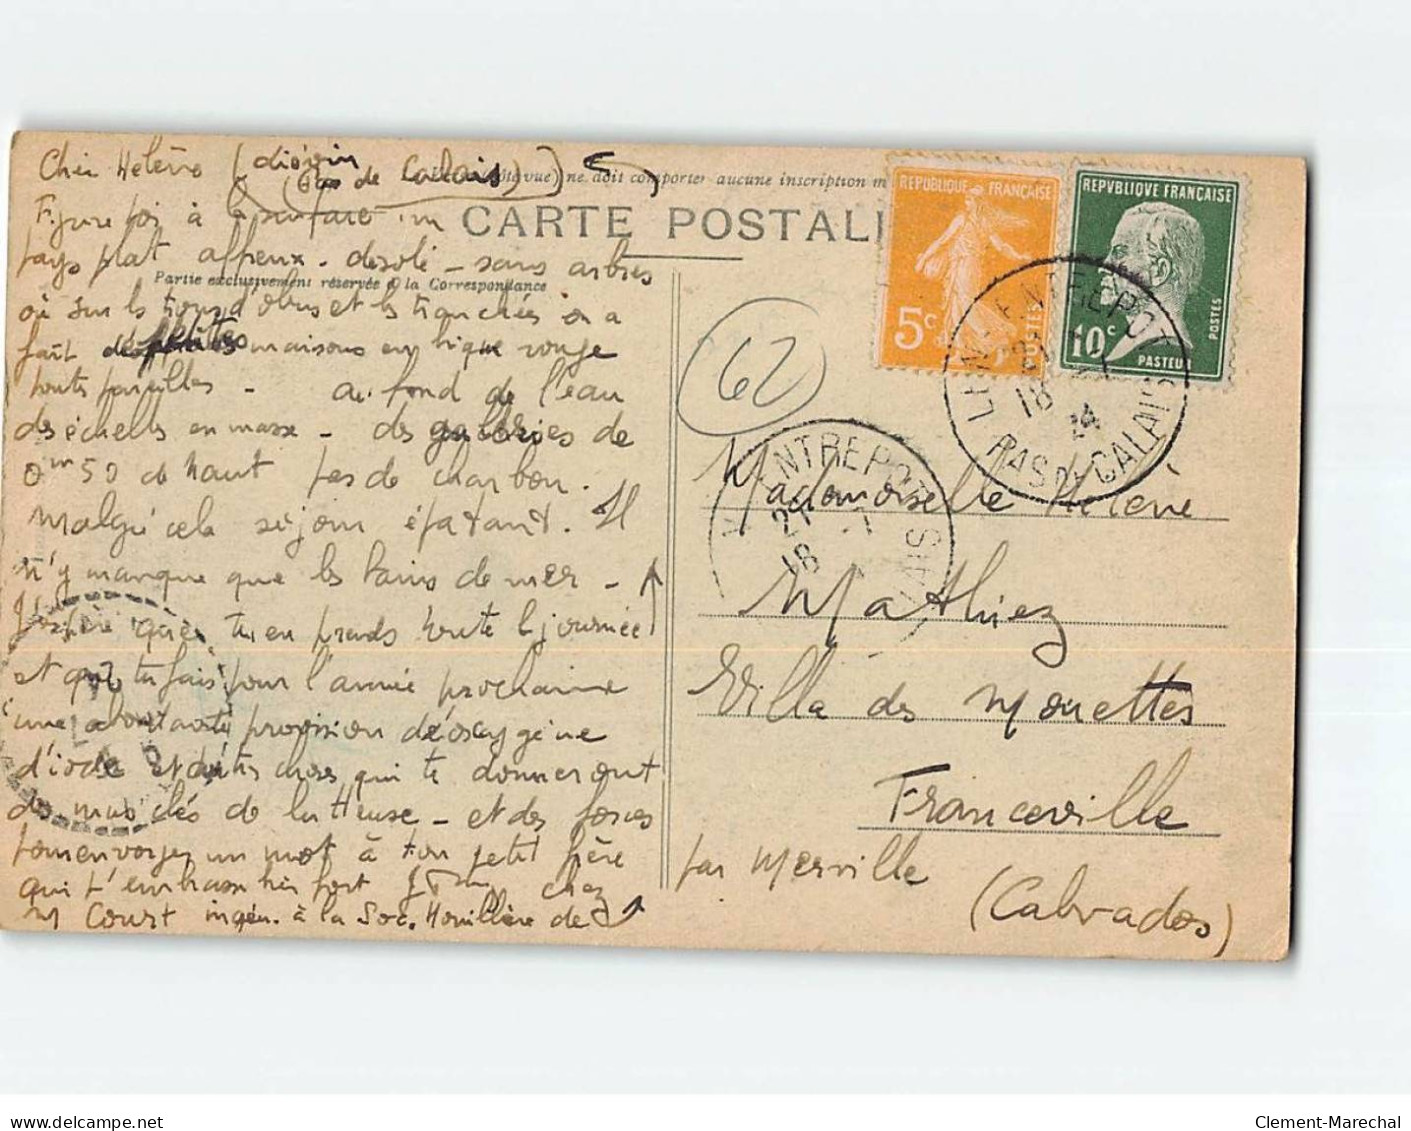 Chère Hélène (
(Pas de Calais)
ôté vue) ne doit comporter aucune inscription
CARTE POSTAL
Figure toi à la surface un
pays plat affreux - désolé - sans arbres
Partie exclusivement réservée à la Correspondance
où sur les trous d'obus et les tranchées on a
fait des petites maisons en brique rouge
toutes pareilles - au fond de l'eau
des échelles en masse - des galeries de
0m50 de haut pas de charbon.
Malgré cela séjour épatant. Il
n'y manque que les bains de mer -
J'espère que tu en prends toute la journée
et que tu fais pour l'année prochaine
une abondante provision d'oxygène
d'iode et autres choses qui te donneront
des muscles de - et des forces
envoyer un mot à ton petit frère
qui t'embrasse très fort chez
M Court ingén. à la Soc. Houillère de
REPUBLIQUE FRANÇAISE
5c
POSTES
REPVBLIQVE FRANÇAISE
10c
PASTEUR
POSTES
ENTREPOT
18
24
PAS DE CALAIS
62
ENTREPOT
21 -7
18
LAIS
Mademoiselle Hélène
Mathiez
Villa des Mouettes
Franceville
par Merville
(Calvados)
Clement-Marechal